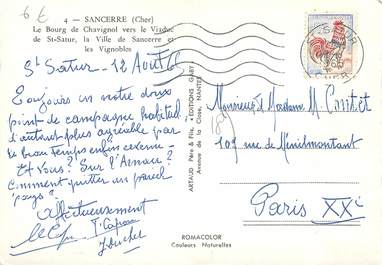 6 €
4 - SANCERRE (Cher)
Le Bourg de Chavignol vers le Viaduc
de St-Satur, la Ville de Sancerre et
les Vignobles
St Satur - 12 Août
Toujours en notre doux
point de campagne habituel
d'autant plus agréable par
le beau temps enfin revenu -
Et Vous? Sur l'
Comment quitter un pareil
pays?
Affectueusement
ARTAUD Père & Fils, ÉDITIONS GABY
Avenue de la Close, NANTES
ST-SATUR
CHER
Monsieur et Madame M.
109 rue de Ménilmontant
Paris XXe
ROMACOLOR
Couleurs Naturelles